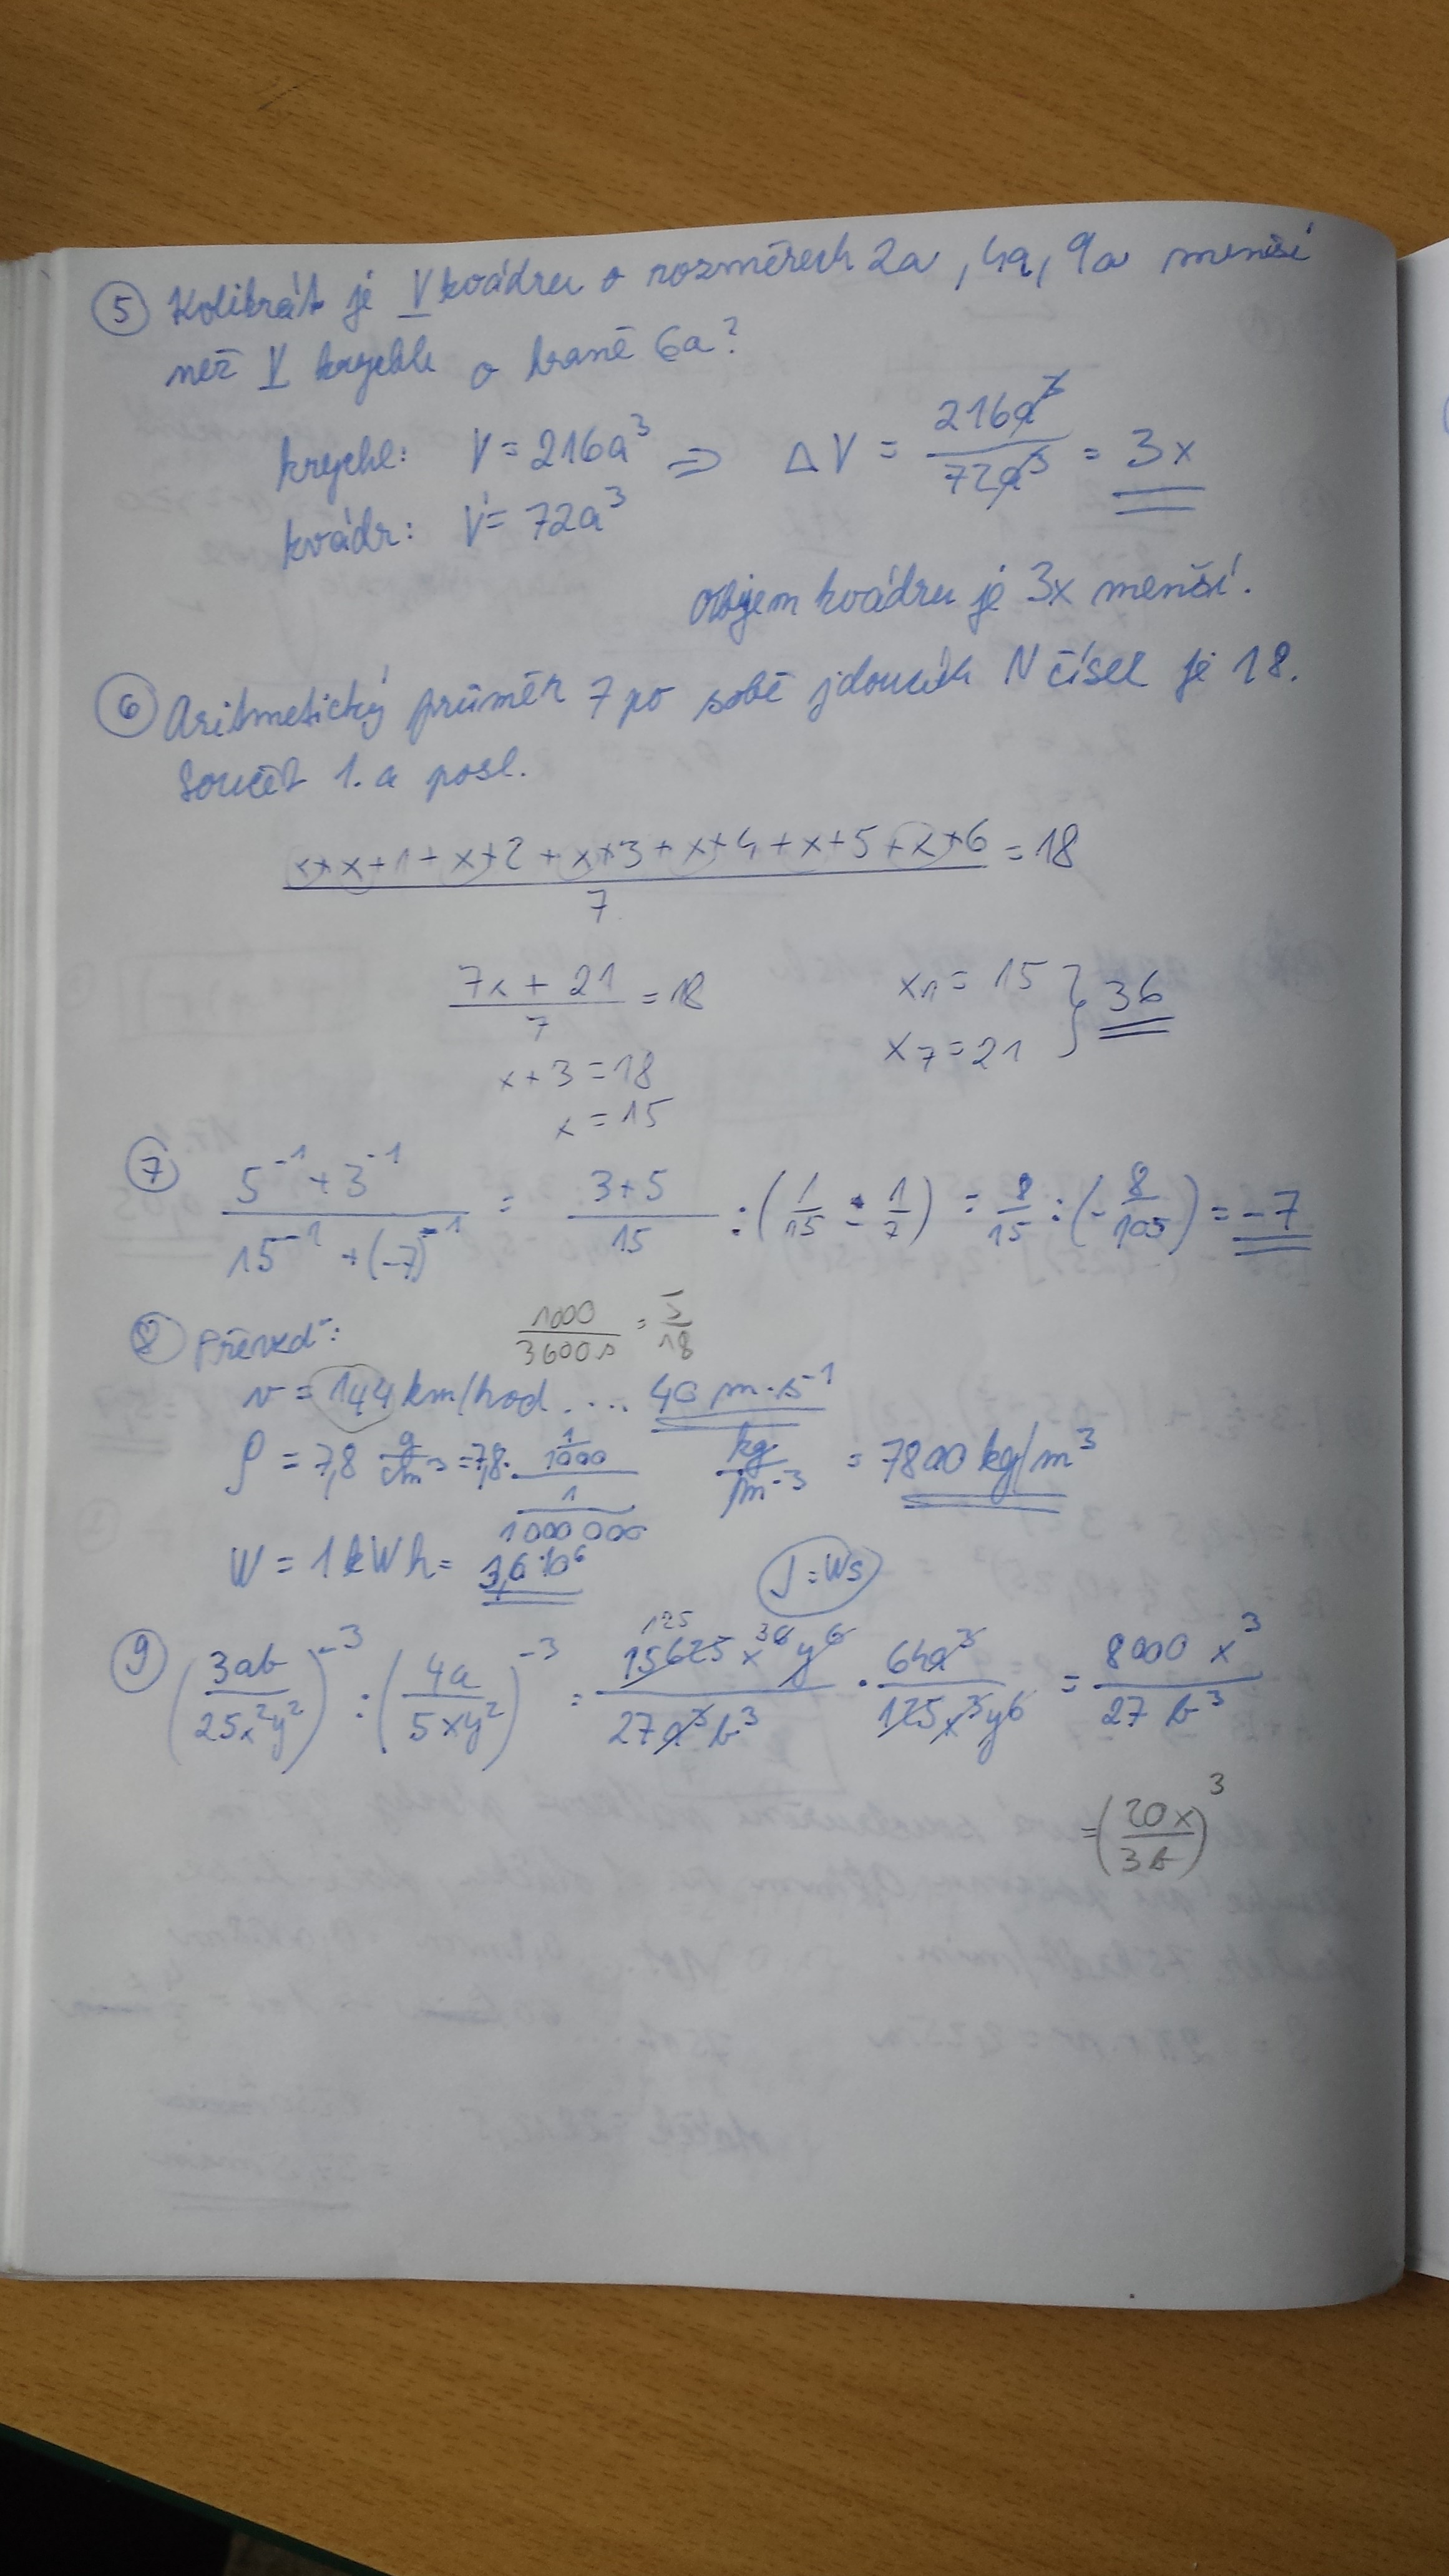 5 Kolikrát je V kvádru o rozměrech 2a, 4a, 9a menší
než V krychle o hraně 6a?
krychl: V = 216a³ ⇒ ΔV = 216a³/72a³ = 3x
kvádr: V = 72a³
objem kvádru je 3x menší.
6 Aritmetický průměr 7 po sobě jdoucích N čísel je 18.
Součet 1. a posl.
(x+x+1+x+2+x+3+x+4+x+5+x+6)/7 = 18
(7x + 21)/7 = 18 x₁ = 15 } 36
x+3 = 18 x₇ = 21
x = 15
7 (5⁻¹ + 3⁻¹)/(15⁻¹ + (-7)⁻¹) = (3+5)/15 : (1/15 - 1/7) = 8/15 : (-8/105) = -7
8 Převeď: 1000/3600s = 5/18
v = 144 km/hod .... 40 m·s⁻¹
ρ = 7,8 g/cm⁻³ = 7,8· (1/1000)/(1/1000000) kg/m⁻³ = 7800 kg/m³
W = 1 kWh = 3,6·10⁶ J = Ws
9 (3ab/25x²y²)⁻³ : (4a/5xy²)⁻³ = 125 15625x⁶y⁶/27a³b³ · 64a³/125x³y⁶ = 8000 x³/27 b³
= (20x/3b)³